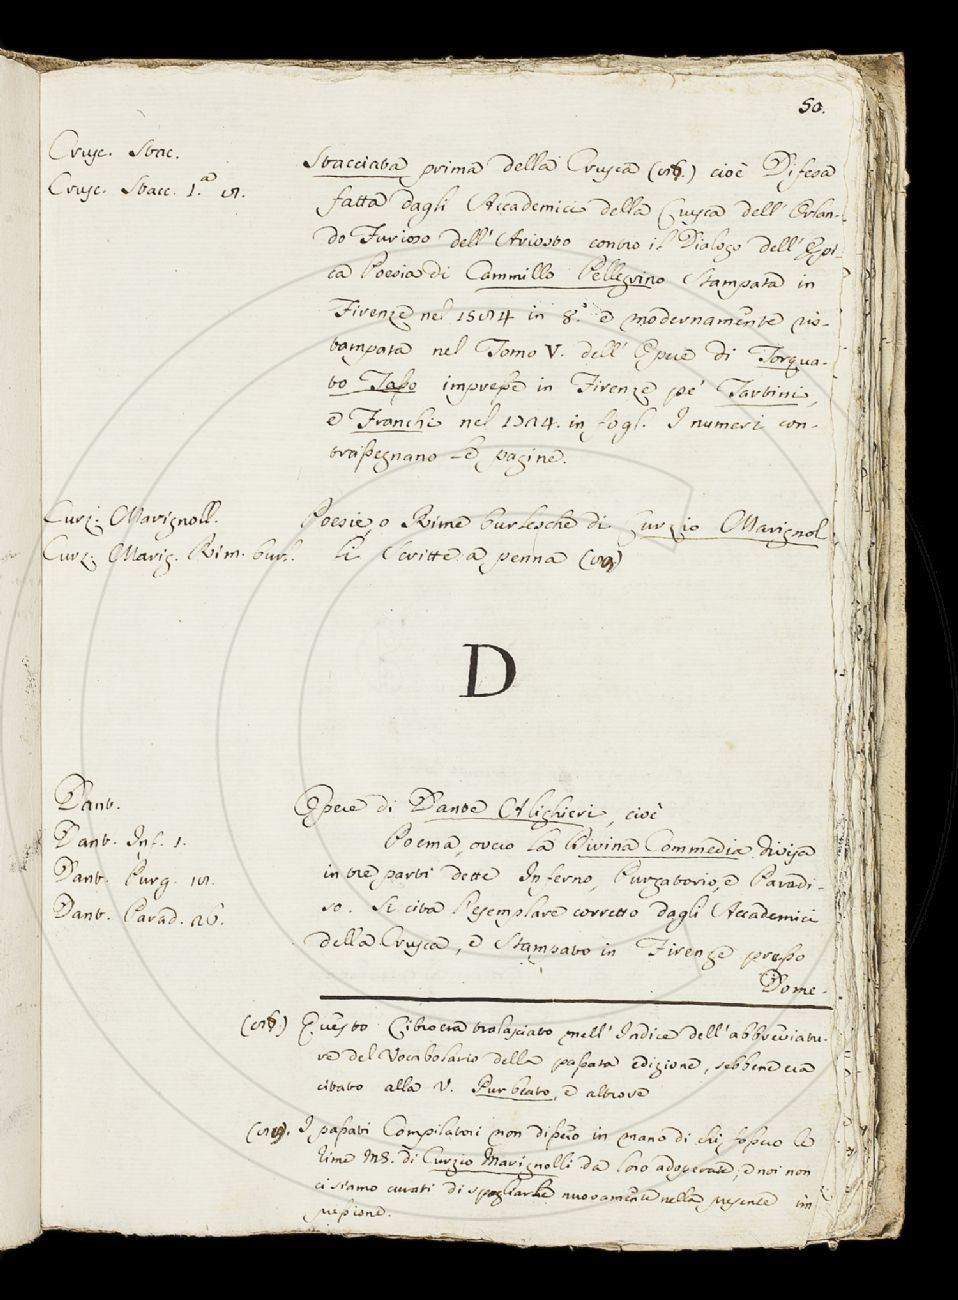 50.
Crusc. Stac.
Crusc. Stacc. 1.ª
Stacciata prima della Crusca cioè Difesa
fatta dagli Accademici della Crusca dell' Orlan-
do Furioso dell' Ariosto contro il Dialogo dell' Epi-
ca Poesia di Cammillo Pellegrino Stampata in
Firenze nel 1584 in 8.° e modernamente ris-
tampata nel Tomo V. dell' Opere di Torqua-
to Tasso impresse in Firenze pe' Tartini,
e Franchi nel in fogl. I numeri con-
trassegnano le pagine.
Curz. Marignoll.
Curz. Marig. Rim. burl.
Poesie, o Rime burlesche di Curzio Marignol
li Scritte a penna
D
Dant.
Dant. Inf. 1.
Dant. Purg.
Dant. Parad.
Opere di Dante Alighieri, cioè
Poema, ovvero la Divina Commedia divisa
in tre parti dette Inferno, Purgatorio, e Paradi-
so. Si cita l'esemplare corretto dagli Accademici
della Crusca, e Stampato in Firenze presso
Dome-
Questo Libro era tralasciato nell' Indice dell' abbreviatu-
re del Vocabolario della passata edizione, sebbene era
citato alla V. e altrove
I passati Compilatori non dissero in mano di chi fossero le
Rime MS. di Curzio Marignolli da loro adoperate, e noi non
ci siamo curati di spogliarle nuovamente nella presente im
pressione.